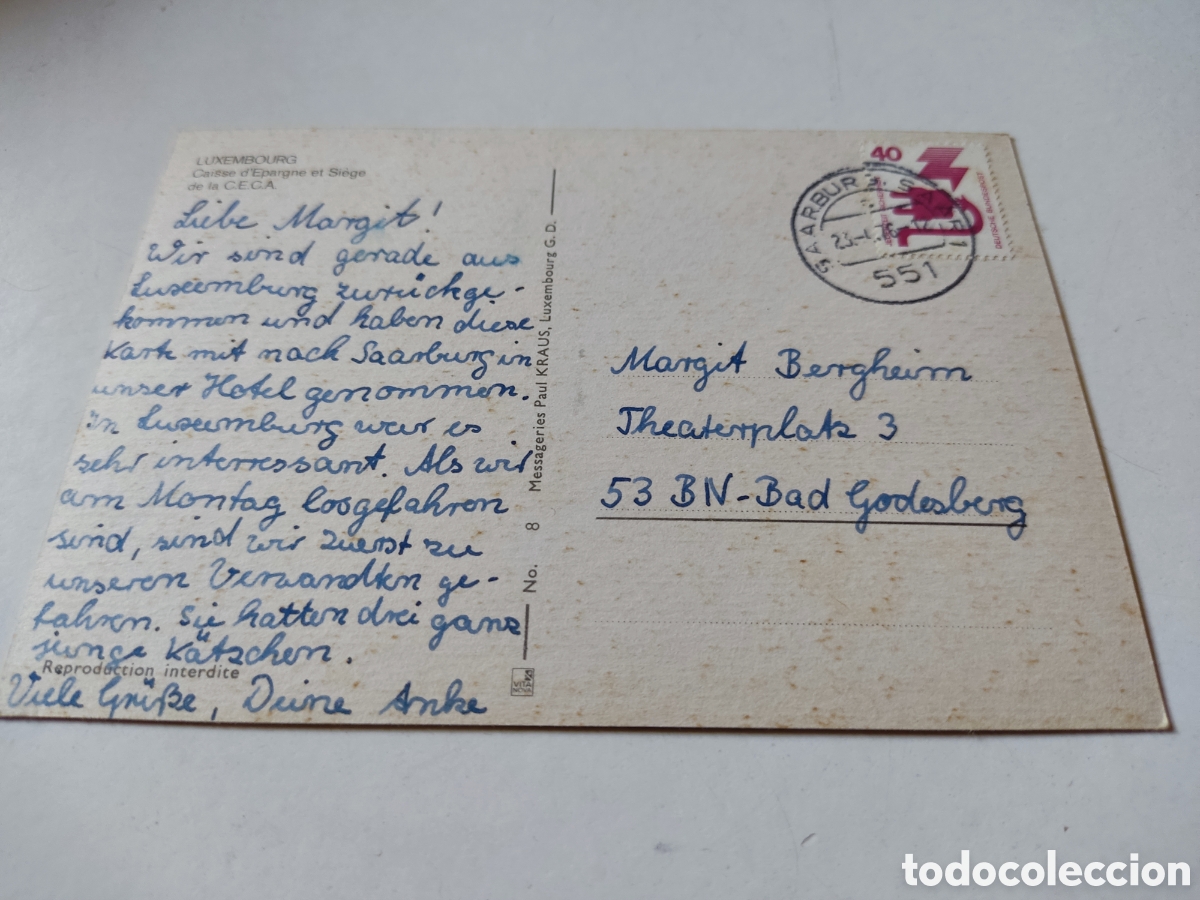 LUXEMBOURG
Caisse d'Epargne et Siège
de la C.E.C.A.
Liebe Margit!
Wir sind gerade aus
Luxemburg zurückge-
kommen und haben diese
Karte mit nach Saarburg in
unser Hotel genommen.
In Luxemburg war es
sehr interressant. Als wir
am Montag losgefahren
sind, sind wir zuerst zu
unseren Verwandten ge-
fahren. Sie hatten drei ganz
junge Kätzchen.
Reproduction interdite
Viele Grüße, Deine Anke
No. 8 Messageries Paul KRAUS, Luxembourg G. D.
40
DEUTSCHE BUNDESPOST
SAARBURG
551
Margit Bergheim
Theaterplatz 3
53 BN-Bad Godesberg
todocoleccion